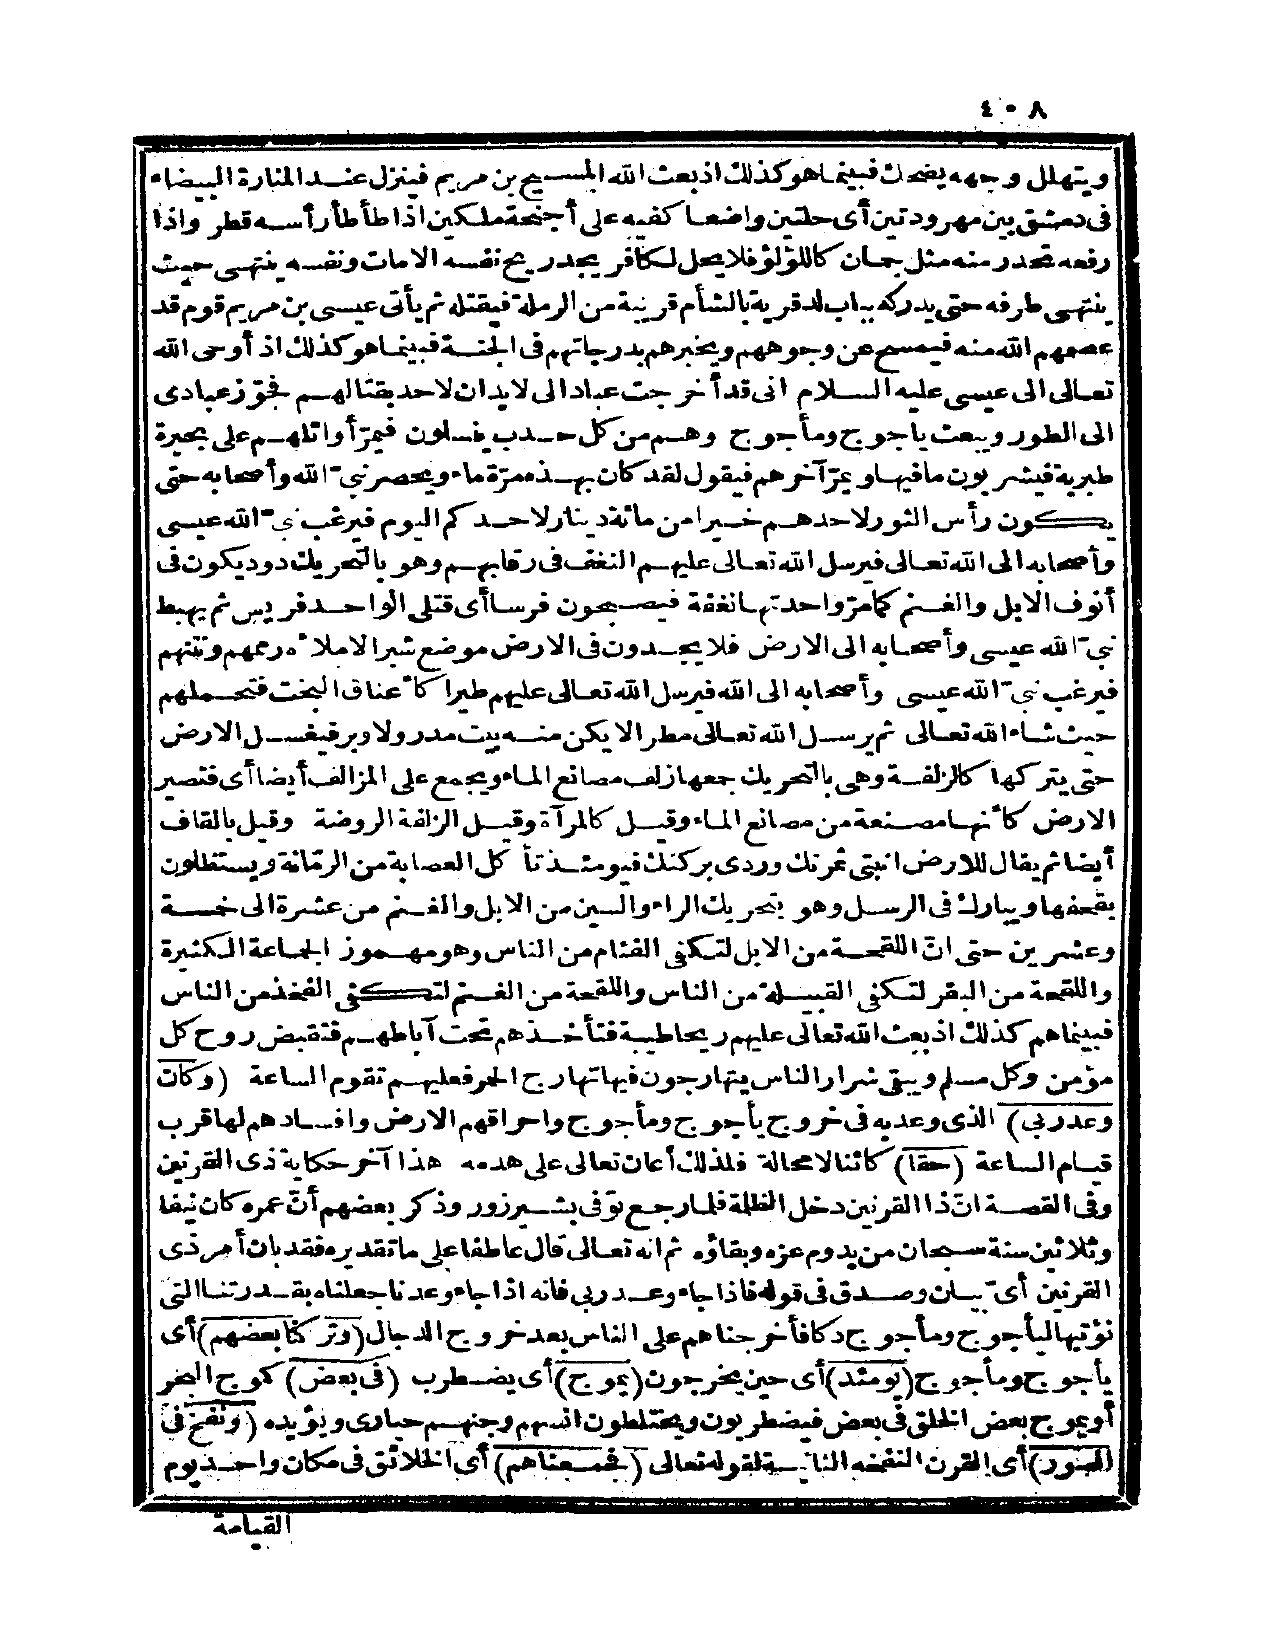 ٤٠٨
ويتهلل وجهه يضحك فبينما هو كذلك اذ بعث الله المسيح بن مريم فينزل عند المنارة البيضاء
فى دمشق بين مهرودتين أى حلتين واضعا كفيه على أجنحة ملكين اذا طأطأ رأسه قطر واذا
رفعه تحدر منه مثل جمان كاللؤلؤ فلا يحل لكافر يجد ريح نفسه الا مات ونفسه ينتهى حيث
ينتهى طرفه حتى يدركه بباب لد قرية بالشأم قريبة من الرملة فيقتله ثم يأتى عيسى بن مريم قوم قد
عصمهم الله منه فيمسح عن وجوههم ويخبرهم بدرجاتهم فى الجنة فبينما هو كذلك اذ أوحى الله
تعالى الى عيسى عليه السلام انى قد أخرجت عبادا لى لا يدان لاحد بقتالهم فحوّز عبادى
الى الطور ويبعث ياجوج ومأجوج وهم من كل حدب ينسلون فيمرّ أوائلهم على بحيرة
طبرية فيشربون ما فيها ويمرّ آخرهم فيقول لقد كان بهذه مرّة ماء ويحصر نبىّ الله وأصحابه حتى
يكون رأس الثور لاحدهم خيرا من مائة دينار لاحدكم اليوم فيرغب نبىّ الله عيسى
وأصحابه الى الله تعالى فيرسل الله تعالى عليهم النغف فى رقابهم وهو بالتحريك دود يكون فى
أنوف الابل والغنم كما مرّ واحدتها نغفة فيصبحون فرسا أى قتلى الواحد فريس ثم يهبط
نبىّ الله عيسى وأصحابه الى الارض فلا يجدون فى الارض موضع شبر الا ملأه زهمهم ونتنهم
فيرغب نبىّ الله عيسى وأصحابه الى الله فيرسل الله تعالى عليهم طيرا كأعناق البخت فتحملهم
حيث شاء الله تعالى ثم يرسل الله تعالى مطرا لا يكن منه بيت مدر ولا وبر فيغسل الارض
حتى يتركها كالزلفة وهى بالتحريك جمعها زلف مصانع الماء ويجمع على المزالف أيضا أى فتصير
الارض كأنها مصنعة من مصانع الماء وقيل كالمرآة وقيل الزلفة الروضة وقيل بالقاف
أيضا ثم يقال للارض انبتى ثمرتك وردى بركتك فيومئذ تأكل العصابة من الرمّانة ويستظلون
بقحفها ويبارك فى الرسل وهو بتحريك الراء والسين من الابل والغنم من عشرة الى خمسة
وعشرين حتى انّ اللقحة من الابل لتكفى الفئام من الناس وهو مهموز الجماعة الكثيرة
واللقحة من البقر لتكفى القبيلة من الناس واللقحة من الغنم لتكفى الفخذ من الناس
فبينما هم كذلك اذ بعث الله تعالى عليهم ريحا طيبة فتأخذهم تحت آباطهم فتقبض روح كل
مؤمن وكل مسلم ويبقى شرار الناس يتهارجون فيها تهارج الحمر فعليهم تقوم الساعة (وكان
وعد ربى) الذى وعد به فى خروج يأجوج ومأجوج واحراقهم الارض وافسادهم لها قرب
قيام الساعة (حقا) كائنا لا محالة فلذلك أعان تعالى على هدمه هذا آخر حكاية ذى القرنين
وفى القصة انّ ذا القرنين دخل الظلمة فلما رجع توفى بشيرزور وذكر بعضهم أنّ عمره كان نيفا
وثلاثين سنة سبحان من يدوم عزه وبقاؤه ثم انه تعالى قال عاطفا على ما تقديره فقد بان أمر ذى
القرنين أىّ بيان وصدق فى قوله فاذا جاء وعد ربى فانه اذا جاء وعدنا جعلناه بقدرتنا التى
نؤتيها ليأجوج ومأجوج دكا فأخرجناهم على الناس بعد خروج الدجال (وتركنا بعضهم) أى
يأجوج ومأجوج (يومئذ) أى حين يخرجون (يموج) أى يضطرب (فى بعض) كموج البحر
أو يموج بعض الخلق فى بعض فيضطربون ويختلطون انسهم وجنهم حيارى ويؤيده (ونفخ فى
الصور) أى القرن النفخة الثانية لقوله تعالى (فجمعناهم) أى الخلائق فى مكان واحد يوم
القيامة